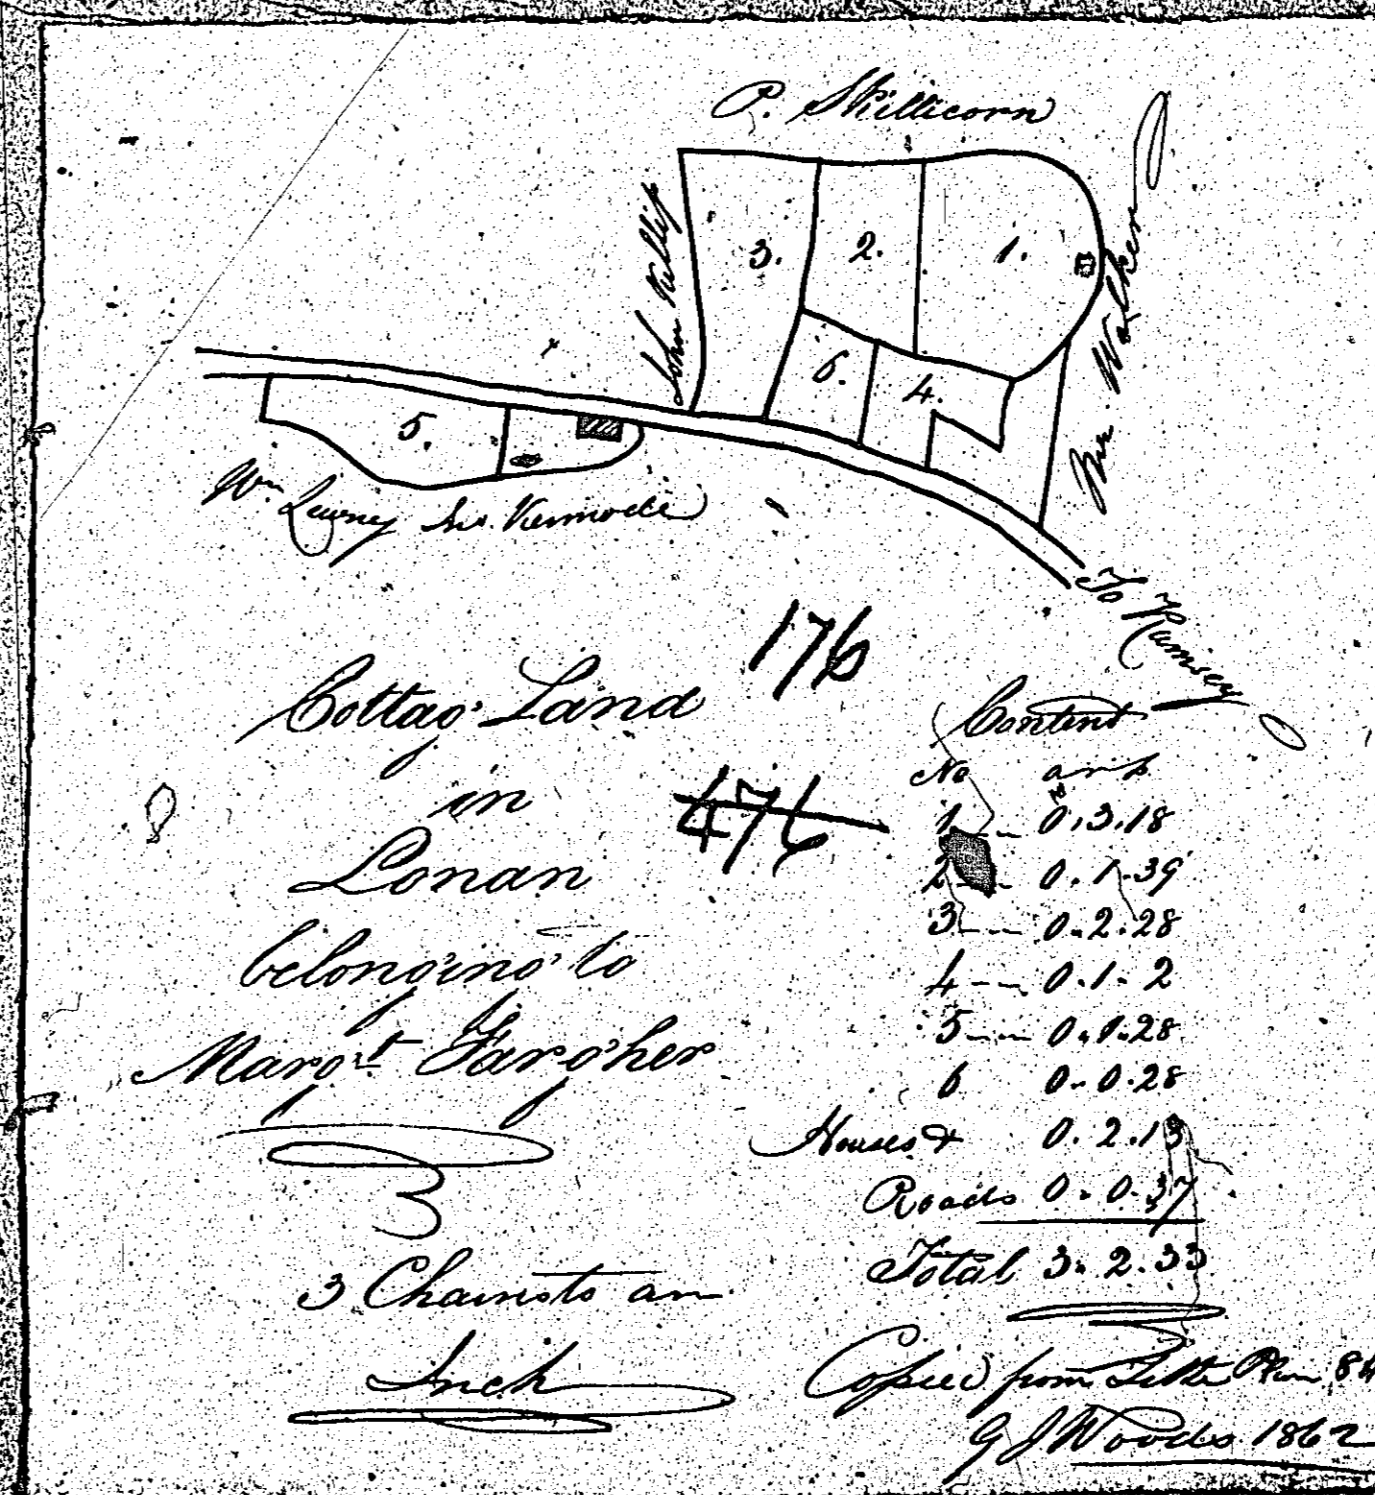 P. Skillicorn
John Killip
3.
2.
1.
6.
4.
5.
Mr. Walker
Wm Lewney Jno. Kermode
To Ramsey
176
Cottag Land
in
476
Lonan
belonging to
Margt Fargher
3 Chains to an
Inch
Content
No a r p
1 -- 0.3.18
2 -- 0.1.39
3 -- 0.2.28
4 -- 0.1.2
5 -- 0.1.28
6 0.0.28
Houses & 0.2.13
Roads 0.0.37
Total 3.2.33
Copied from Plan
G J Woods 1862